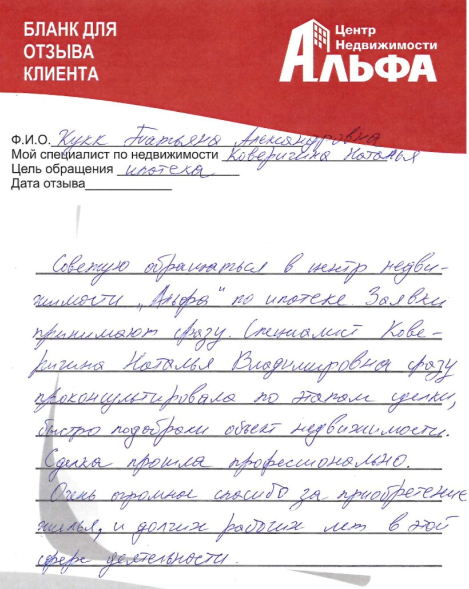 БЛАНК ДЛЯ
ОТЗЫВА
КЛИЕНТА
Центр
Недвижимости
АЛЬФА
Ф.И.О. Кукк Татьяна Александровна
Мой специалист по недвижимости Коверигина Наталья
Цель обращения ипотека
Дата отзыва
Советую обращаться в центр недви-
жимости „Альфа" по ипотеке. Заявки
принимают сразу. Специалист Кове-
ригина Наталья Владимировна сразу
проконсультировала по этапам сделки,
быстро подобрали объект недвижимости.
Сделка прошла профессионально.
Очень огромное спасибо за приобретение
жилья, и долгих рабочих лет в этой
сфере деятельности.